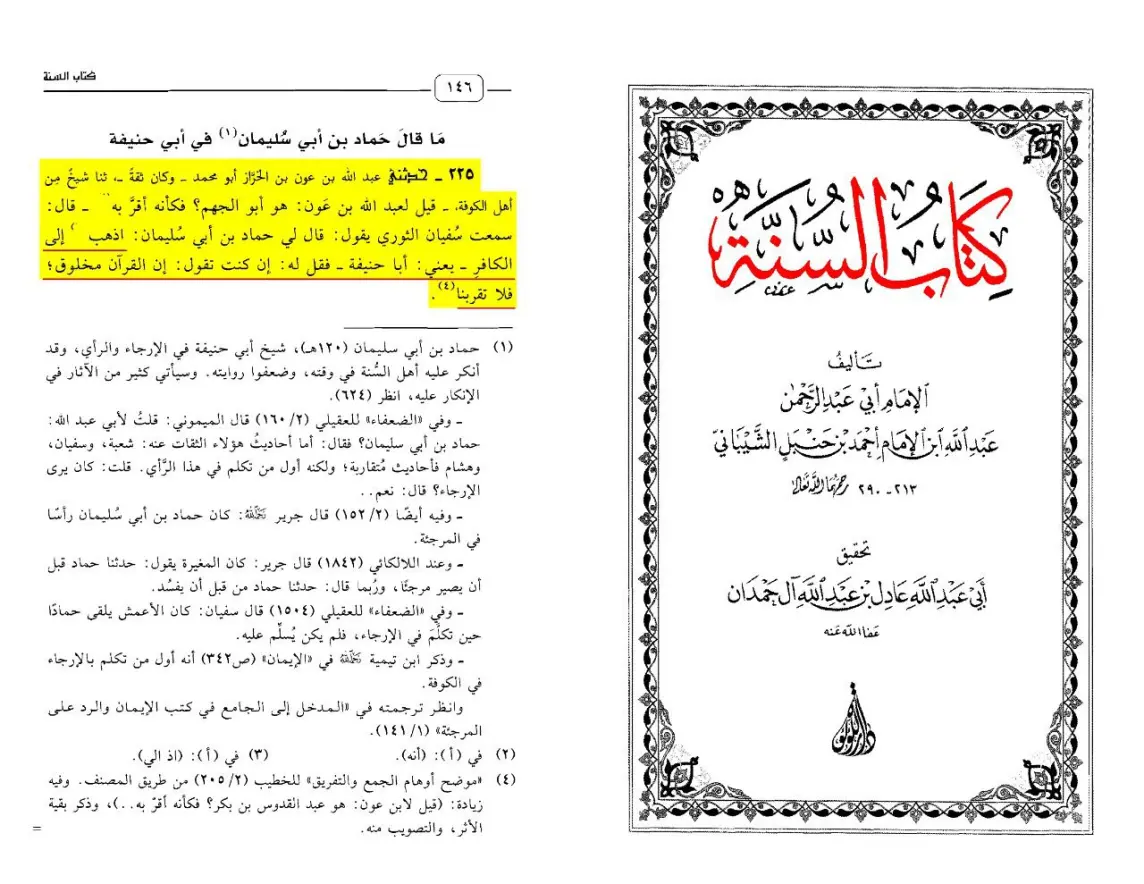 كتاب السنة
١٤٦
مَا قالَ حَماد بن أبي سُليمان(١) في أبي حنيفة
٢٢٥ ـ حدثني عبد الله بن عون بن الخَزَّاز أبو محمد ـ وكان ثقةً ـ، ثنا شيخٌ مِن
أهل الكوفة. ـ قيل لعبد الله بن عَون: هو أبو الجهم؟ فكأنه أقرَّ به ـ قال:
سمعت سُفيان الثوري يقول: قال لي حماد بن أبي سُليمان: اذهب إلى
الكافرِ ـ يعني: أبا حنيفة ـ فقل له: إن كنت تقول: إن القرآن مخلوق؛
فلا تقربنا(٤).
(١) حماد بن أبي سليمان (١٢٠هـ)، شيخ أبي حنيفة في الإرجاء والرأي، وقد
أنكر عليه أهل السُّنة في وقته، وضعفوا روايته. وسيأتي كثير من الآثار في
الإنكار عليه، انظر (٦٢٤).
ـ وفي «الضعفاء» للعقيلي (٢/ ١٦٠) قال الميموني: قلتُ لأبي عبد الله:
حماد بن أبي سليمان؟ فقال: أما أحاديثُ هؤلاء الثقات عنه: شعبة، وسفيان،
وهشام فأحاديث مُتقاربة؛ ولكنه أول من تكلم في هذا الرَّأي. قلت: كان يرى
الإرجاء؟ قال: نعم..
ـ وفيه أيضًا (٢/ ١٥٢) قال جرير رحمه الله: كان حماد بن أبي سُليمان رأسًا
في المرجئة.
ـ وعند اللالكائي (١٨٤٢) قال جرير: كان المغيرة يقول: حدثنا حماد قبل
أن يصير مرجئًا، ورُبما قال: حدثنا حماد من قبل أن يفسُد.
ـ وفي «الضعفاء» للعقيلي (١٥٠٤) قال سفيان: كان الأعمش يلقى حمادًا
حين تكلَّمَ في الإرجاء، فلم يكن يُسلِّم عليه.
ـ وذكر ابن تيمية رحمه الله في «الإيمان» (ص٣٤٢) أنه أول من تكلم بالإرجاء
في الكوفة.
وانظر ترجمته في «المدخل إلى الجامع في كتب الإيمان والرد على
المرجئة» (١/ ١٤١).
(٢) في (أ): (أنه). (٣) في (أ): (اذ الي).
(٤) «موضح أوهام الجمع والتفريق» للخطيب (٢/ ٢٠٥) من طريق المصنف. وفيه
زيادة: (قيل لابن عون: هو عبد القدوس بن بكر؟ فكأنه أقرّ به..)، وذكر بقية
الأثر، والتصويب منه.
=
كِتَابُ السُّنَّةِ
تأليف
الإمام أبي عبد الرحمن
عبد الله ابن الإمام أحمد بن حنبل الشيباني
٢١٣ - ٢٩٠ رحمهما الله تعالى
تحقيق
أبي عبد الله عادل بن عبد الله آل حمدان
عفا الله عنه
دار اللؤلؤة